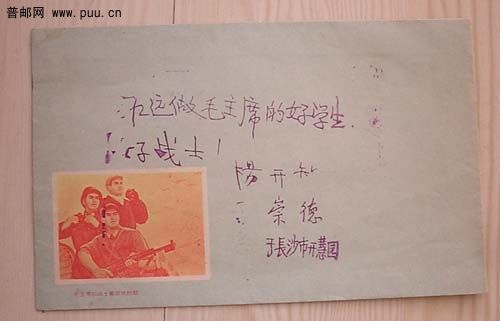 普邮网 www.puu.cn
永远做毛主席的好学生.
好战士!
楊开
崇德
于長沙市开慧园